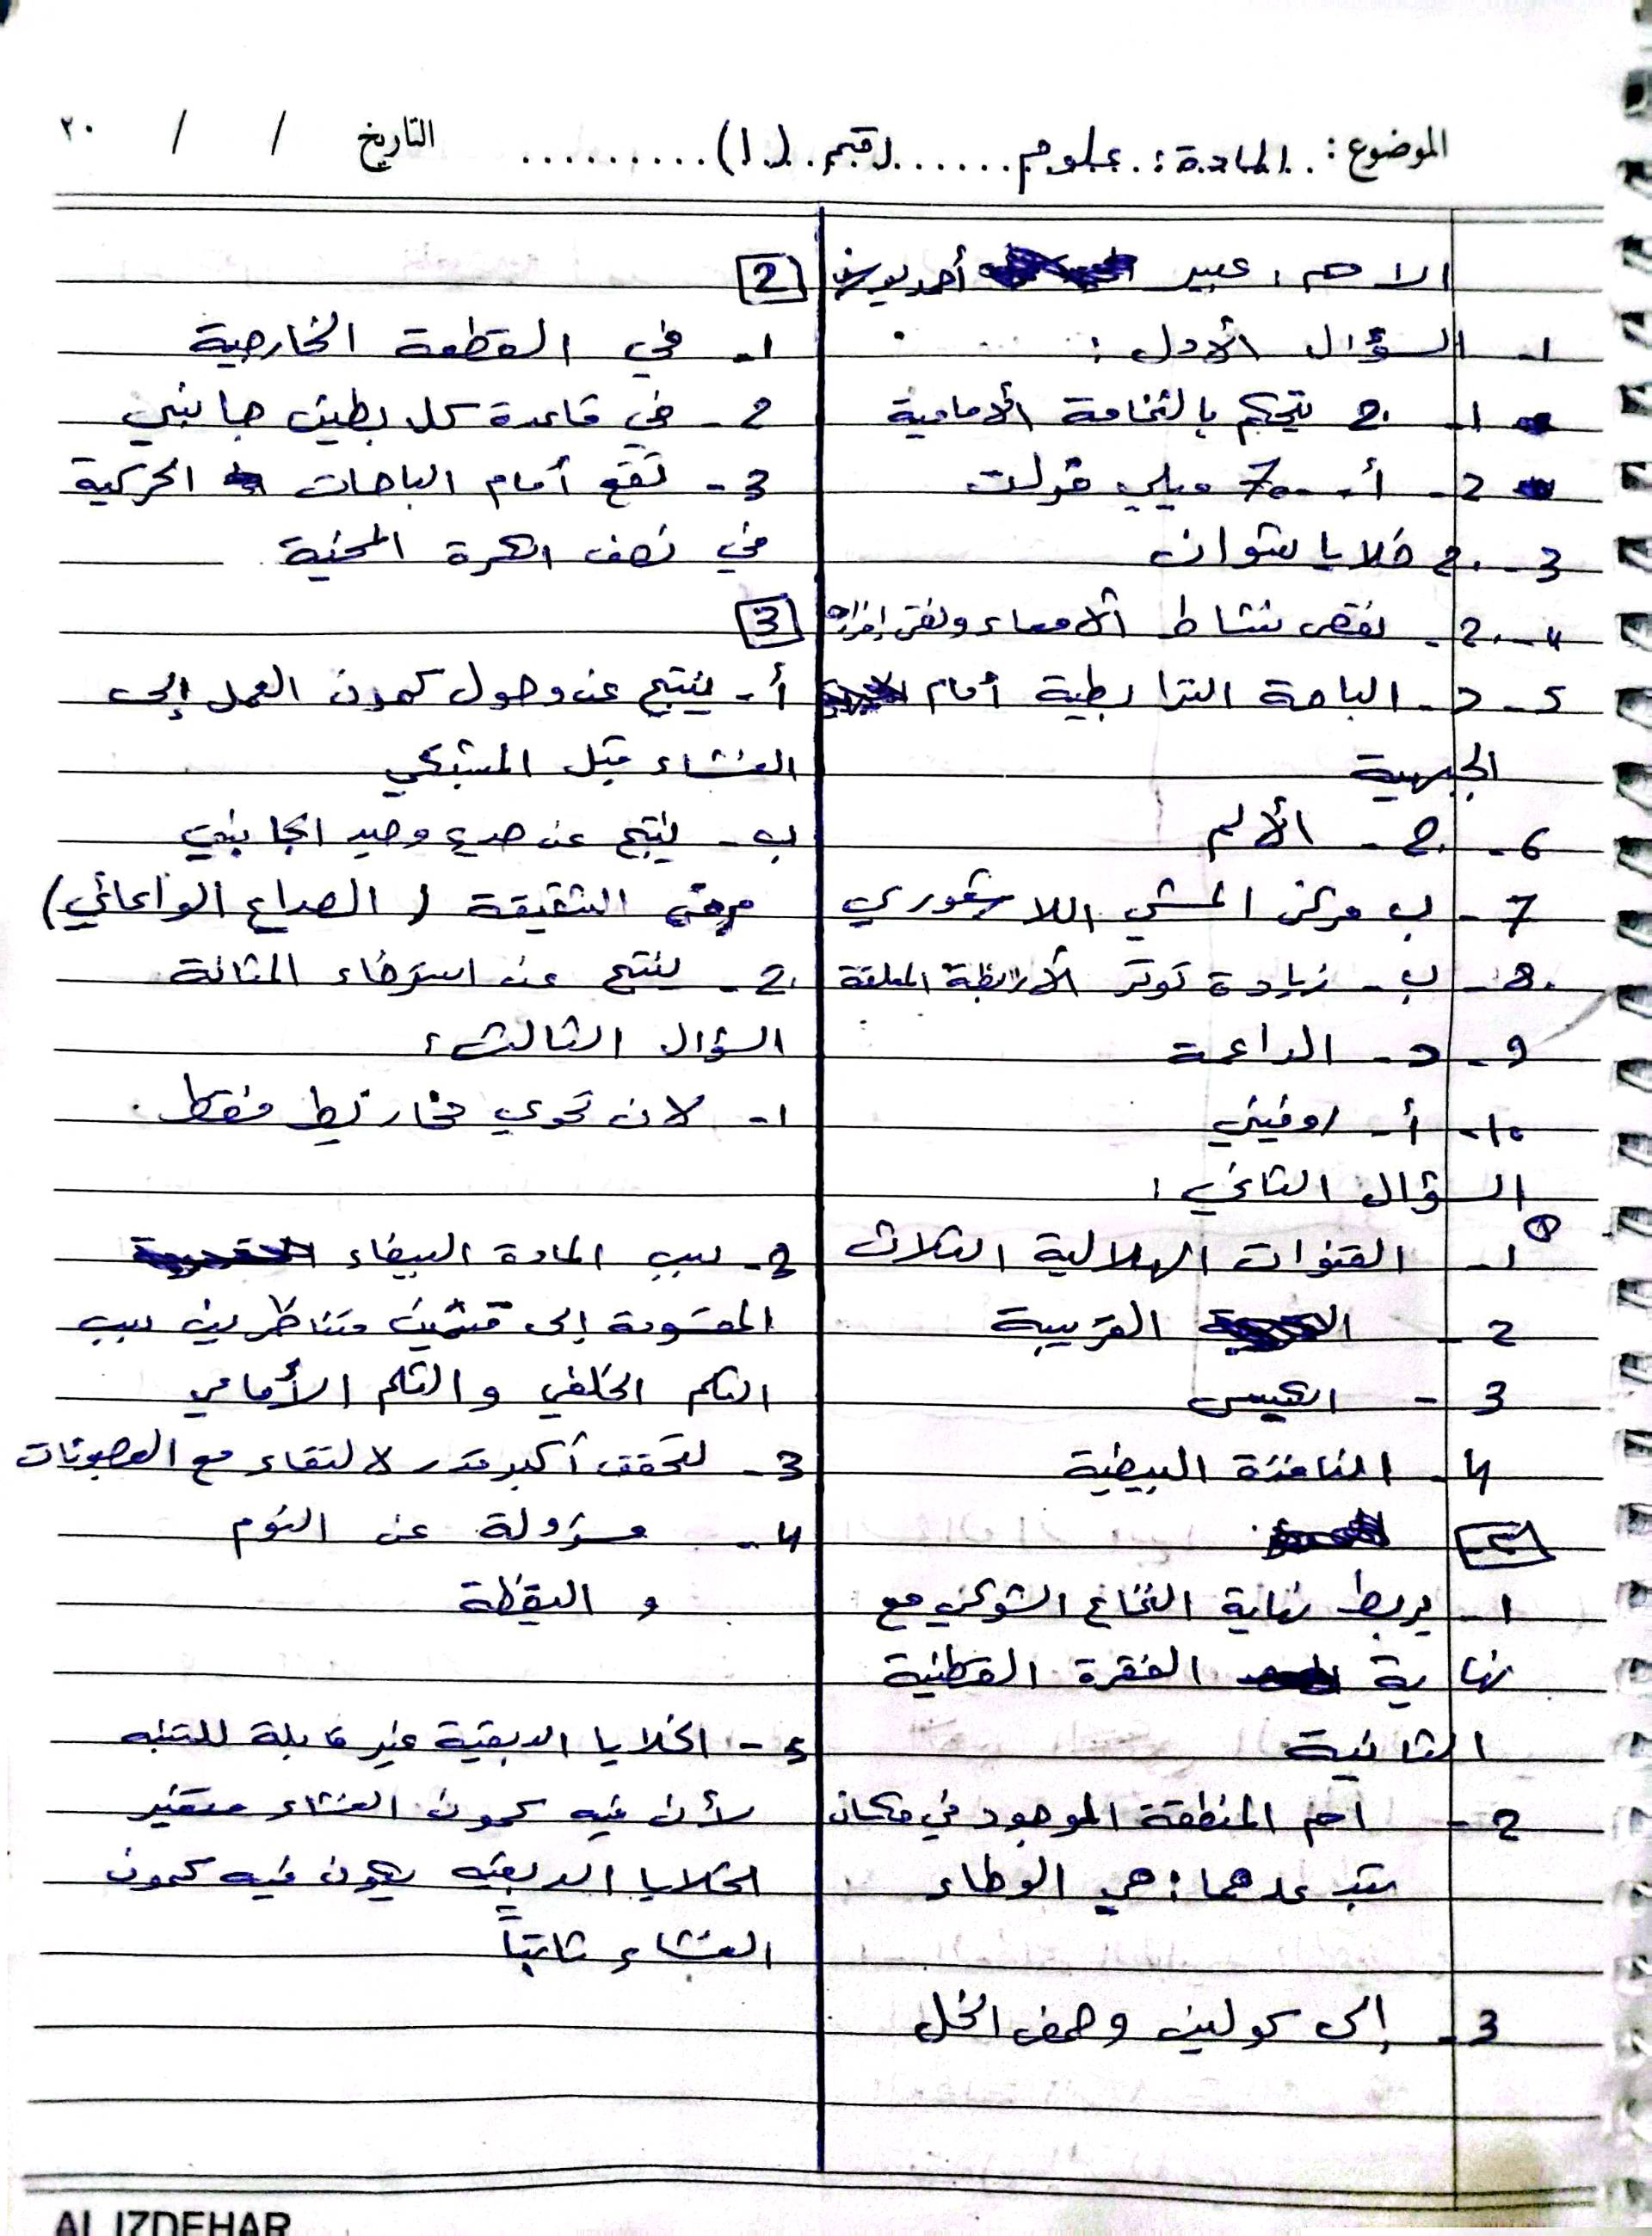 الموضوع: المادة: علوم رقم (1) التاريخ / / ٢٠
الاسم: عبير أحمد
1- السؤال الأول:
1- ج. يتحكم بالنخامة الأمامية
2- أ- 70- ميلي فولت
3- ج. خلايا شوان
4- ج- نقص نشاط الأمعاء ونقص إفرازه
5- د- الباحة الترابطية أمام
الجبهية
6- ج- الألم
7- ب مركز المشي اللاشعوري
8- ب- زيادة توتر الأربطة المعلقة
9- د- الداعمة
10- أ- روفيني
السؤال الثاني:
1
1- القنوات الهلالية الثلاث
2- القريبة
3- الكييس
4- النافذة البيضية
1- يربط نهاية النخاع الشوكي مع
نهاية الفقرة القطنية
الثانية
2- اسم المنطقة الموجود في مكان
هي الوطاء
3- إلى كولين وحمض الخل
2
1- في القطعة الخارجية
2- في قاعدة كل بطين جانبي
3- تقع أمام الباحات الحركية
في نصف الكرة المخية
3
أ- ينتج عن وصول كمون العمل إلى
الغشاء قبل المشبكي
ب- ينتج عن صداع وحيد الجانبي
مرض الشقيقة (الصداع الوعائي)
ج- ينتج عن استرخاء المثانة
السؤال الثالث:
1- لان تحوي مخاريط فقط.
2- سبب المادة البيضاء
المقسومة إلى قسمين متناظرين سبب
التلم الخلفي والثلم الأمامي
3- لتحقق أكبر قدر لالتقاء مع العصبونات
4- مسؤولة عن النوم
و اليقظة
5- الخلايا الدبقية غير قابلة للتنبه
لأن فيه كمون الغشاء متغير
الخلايا الدبقيه يكون فيه كمون
الغشاء ثابتاً
AL IZDEHAR